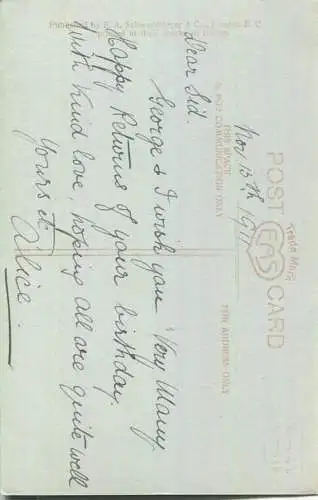 POST CARD
Trade Mark
EAS
THIS SPACE
COMMUNICATION ONLY
THE ADDRESS ONLY
Nov. 13th 1911
Dear Sid.
George & I wish you Very Many
Happy Returns of your birthday.
With kind love, hoping all are quite well
Yours
Alice.
Published by E. A. Schwerdtfeger & Co., London E. C.
Printed at their works in Berlin